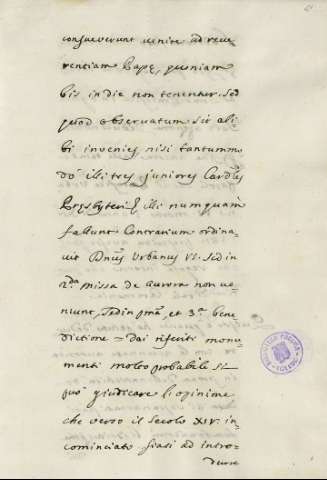 consueverunt venire ad reve-
rentiam Papę, quoniam
bis in die non tenentur. sed
quod observatum sit ali-
bi invenies nisi tantummo-
dò illi tres juniores Card.les
Presbyteri illi numquam
fallunt Contrarium ordina-
vit Dnūs Urbanus VI. sed in
2.da missa de aurora non ve-
niunt, sed in pma, et 3.a bene
dictione = dai riferiti monu-
menti molto probabile si
può giudicare l'opinione
che verso il Secolo XIV. in-
cominciato siasi ad intro-
durre